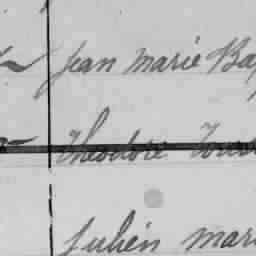 Jean Marie Ba
Théodore
Julien Mar